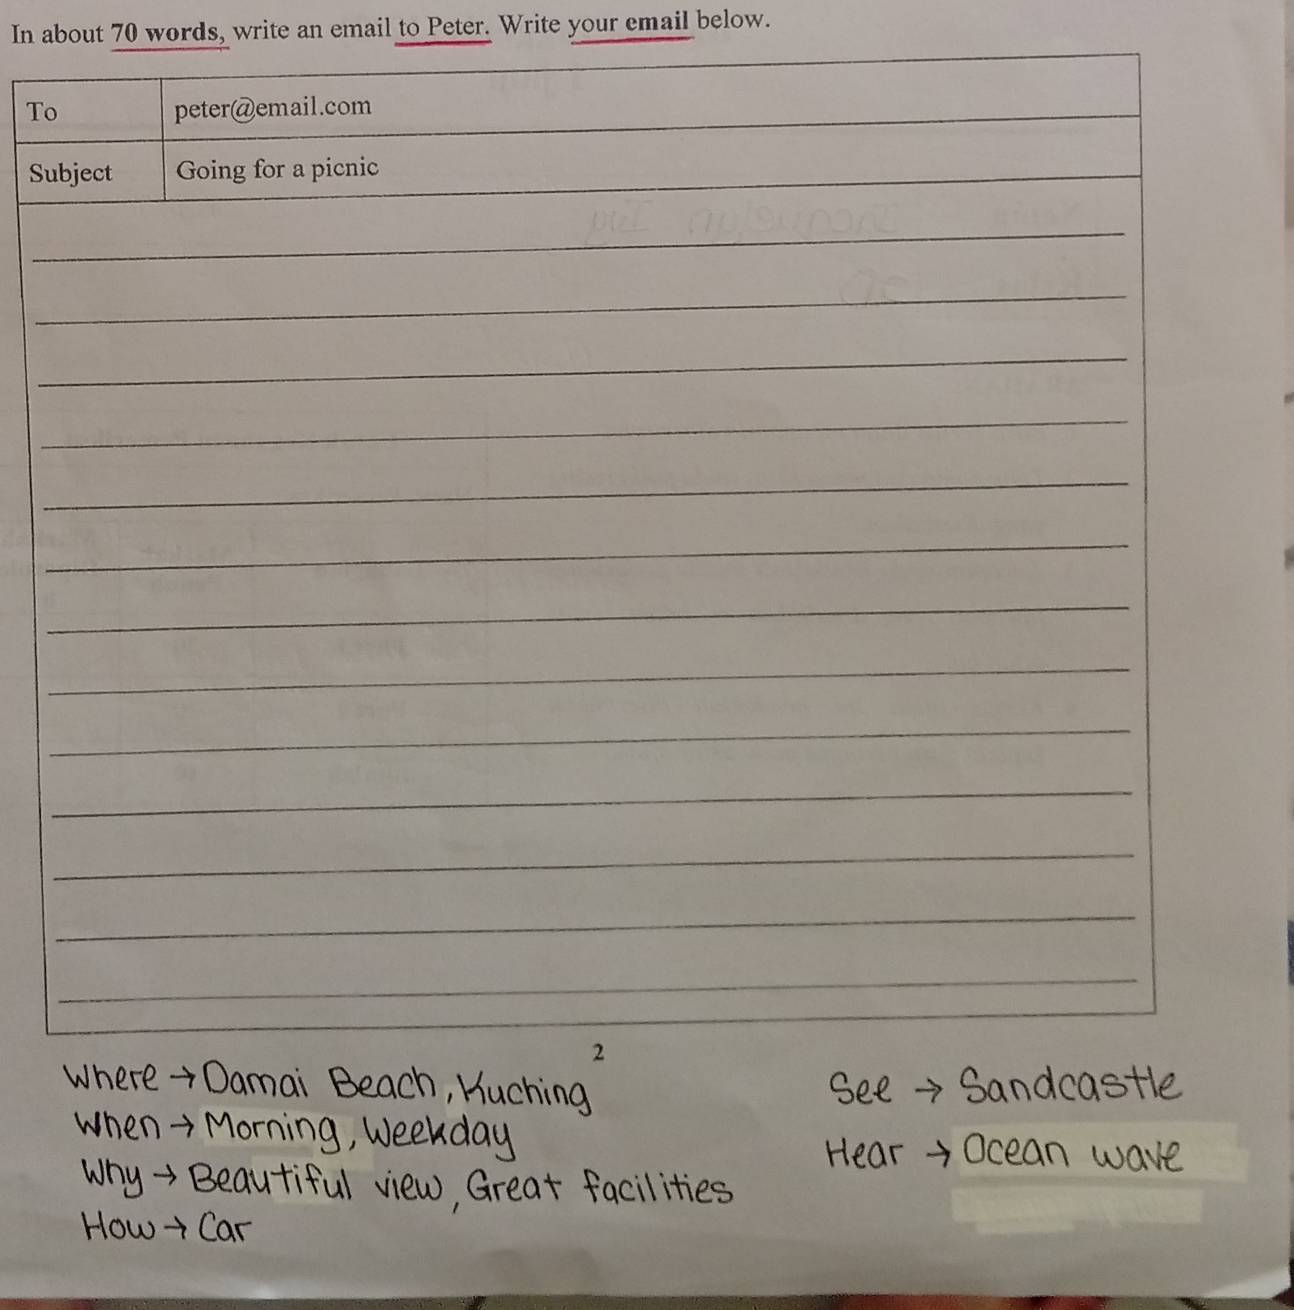 In about 70 words, write an email to Peter. Write your email below.
To peter@email.com
Subject Going for a picnic
2
Where → Damai Beach, Kuching
When → Morning, Weekday
Why → Beautiful view, Great facilities
How → Car
See → Sandcastle
Hear → Ocean wave